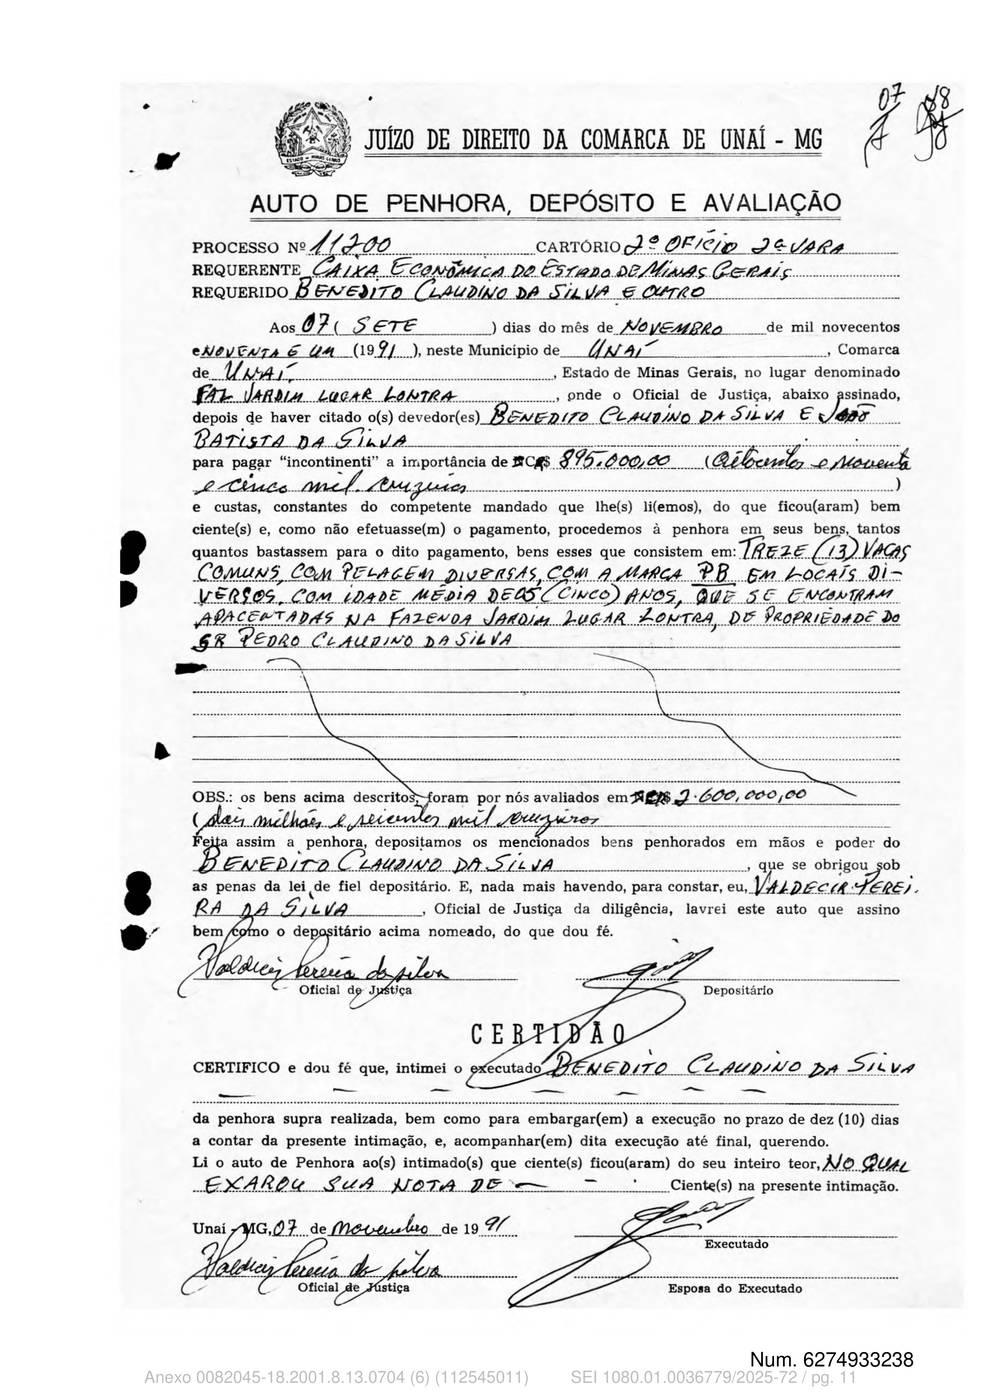 07 48
JUÍZO DE DIREITO DA COMARCA DE UNAÍ - MG
AUTO DE PENHORA, DEPÓSITO E AVALIAÇÃO
PROCESSO Nº 11200 CARTÓRIO 2º OFÍCIO 2ª VARA
REQUERENTE CAIXA ECONÔMICA DO ESTADO DE MINAS GERAIS
REQUERIDO BENEDITO CLAUDINO DA SILVA E OUTRO
Aos 07 ( SETE ) dias do mês de NOVEMBRO de mil novecentos
e NOVENTA E UM (1991 ), neste Município de UNAÍ , Comarca
de UNAÍ , Estado de Minas Gerais, no lugar denominado
FAZ JARDIM LUGAR LONTRA , onde o Oficial de Justiça, abaixo assinado,
depois de haver citado o(s) devedor(es) BENEDITO CLAUDINO DA SILVA E JOÃO
BATISTA DA SILVA
para pagar "incontinenti" a importância de CR$ 895.000,00 (Oitocentos e noventa
e cinco mil cruzeiros )
e custas, constantes do competente mandado que lhe(s) li(emos), do que ficou(aram) bem
ciente(s) e, como não efetuasse(m) o pagamento, procedemos à penhora em seus bens, tantos
quantos bastassem para o dito pagamento, bens esses que consistem em: TREZE (13) VACAS
COMUNS, COM PELAGEM DIVERSAS, COM A MARCA PB EM LOCAIS DI-
VERSOS, COM IDADE MÉDIA DE 05 (CINCO) ANOS, QUE SE ENCONTRAM
APACENTADAS NA FAZENDA JARDIM LUGAR LONTRA, DE PROPRIEDADE DO
SR PEDRO CLAUDINO DA SILVA
OBS.: os bens acima descritos, foram por nós avaliados em CR$ 2.600,000,00
(dois milhões e seicentos mil cruzeiros
Feita assim a penhora, depositamos os mencionados bens penhorados em mãos e poder do
BENEDITO CLAUDINO DA SILVA , que se obrigou sob
as penas da lei de fiel depositário. E, nada mais havendo, para constar, eu, VALDECIR PEREI-
RA DA SILVA , Oficial de Justiça da diligência, lavrei este auto que assino
bem como o depositário acima nomeado, do que dou fé.
Valdecir Pereira da Silva
Oficial de Justiça Depositário
CERTIDÃO
CERTIFICO e dou fé que, intimei o executado BENEDITO CLAUDINO DA SILVA
da penhora supra realizada, bem como para embargar(em) a execução no prazo de dez (10) dias
a contar da presente intimação, e, acompanhar(em) dita execução até final, querendo.
Li o auto de Penhora ao(s) intimado(s) que ciente(s) ficou(aram) do seu inteiro teor, NO QUAL
EXAROU SUA NOTA DE - - - Ciente(s) na presente intimação.
Unaí - MG, 07 de novembro de 1991
Executado
Valdecir Pereira da Silva
Oficial de Justiça Esposa do Executado
Num. 6274933238
Anexo 0082045-18.2001.8.13.0704 (6) (112545011) SEI 1080.01.0036779/2025-72 / pg. 11